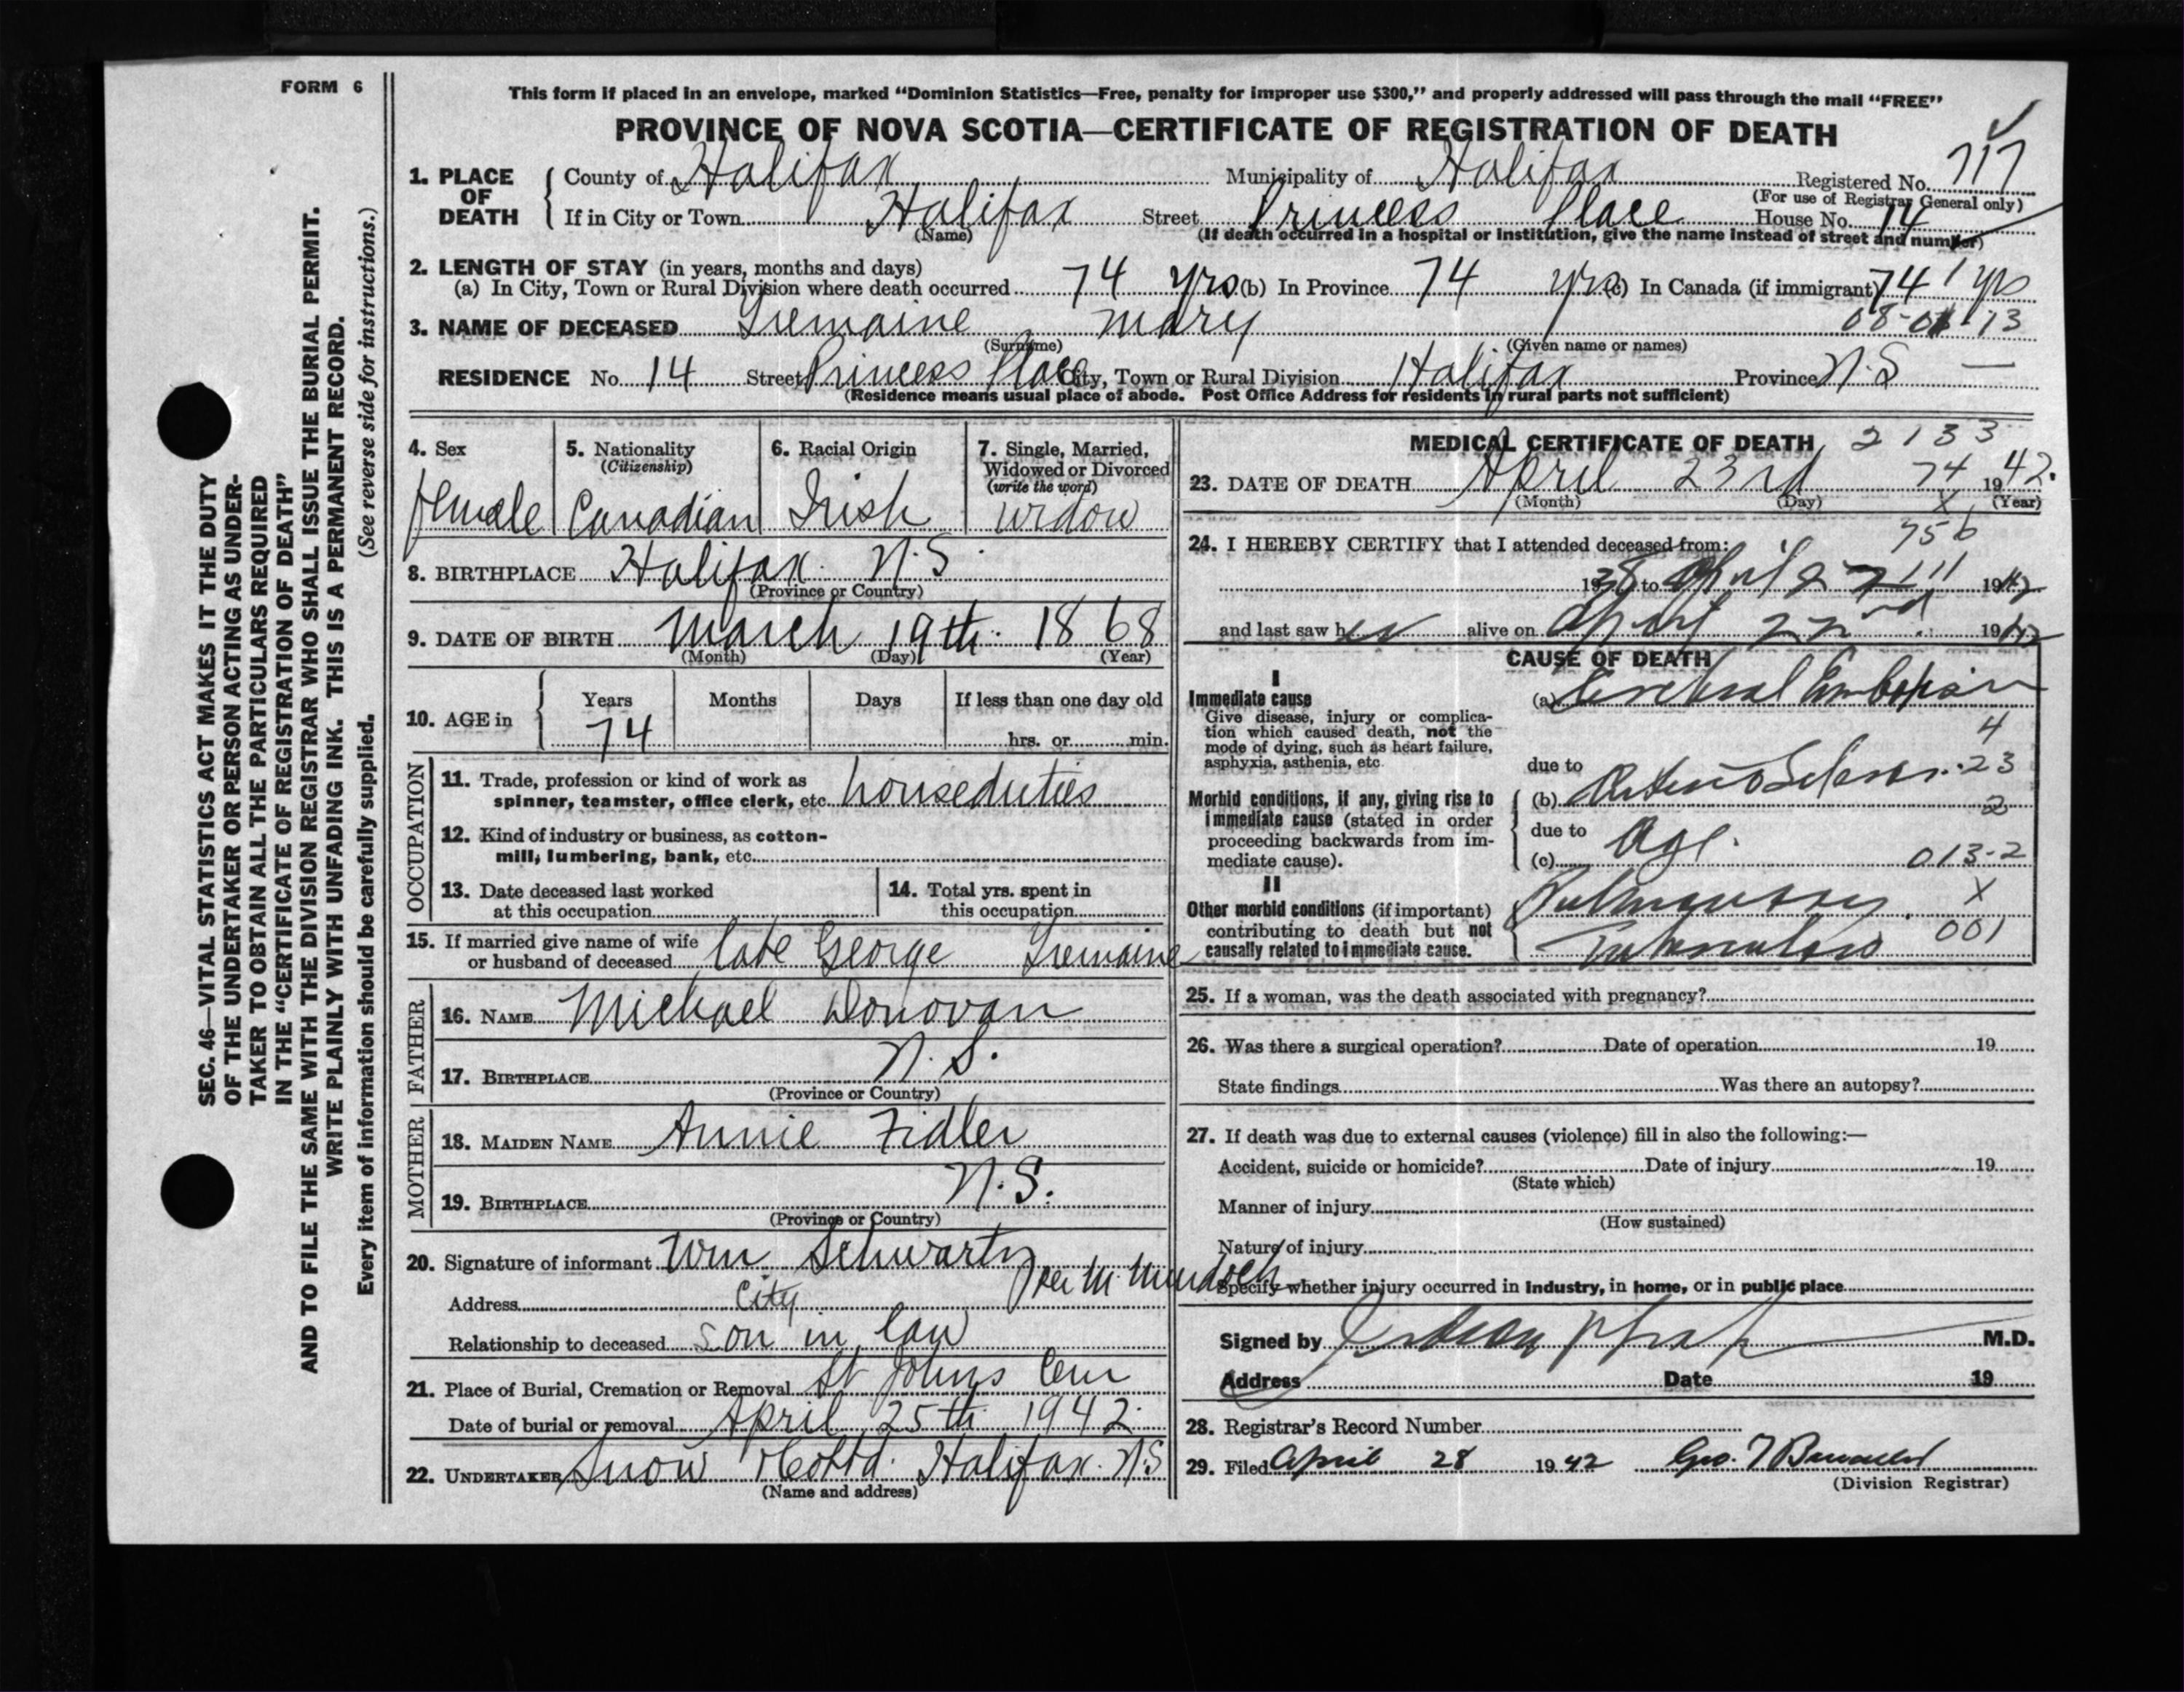 FORM 6
This form if placed in an envelope, marked “Dominion Statistics—Free, penalty for improper use $300,” and properly addressed will pass through the mail “FREE”
PROVINCE OF NOVA SCOTIA—CERTIFICATE OF REGISTRATION OF DEATH
1. PLACE OF DEATH County of Halifax Municipality of Halifax Registered No. 717
(For use of Registrar General only)
If in City or Town Halifax Street Princess Place House No. 14
(Name) (If death occurred in a hospital or institution, give the name instead of street and number)
2. LENGTH OF STAY (in years, months and days)
(a) In City, Town or Rural Division where death occurred 74 yrs (b) In Province 74 yrs (c) In Canada (if immigrant) 74 yrs
3. NAME OF DECEASED Tremaine, Mary
(Surname) (Given name or names)
RESIDENCE No. 14 Street Princess Place City, Town or Rural Division Halifax Province N.S —
(Residence means usual place of abode. Post Office Address for residents in rural parts not sufficient)
4. Sex 5. Nationality (Citizenship) 6. Racial Origin 7. Single, Married, Widowed or Divorced (write the word)
female Canadian Irish widow
8. BIRTHPLACE Halifax. N.S.
(Province or Country)
9. DATE OF BIRTH March 19th. 1868
(Month) (Day) (Year)
10. AGE in Years Months Days If less than one day old
74 hrs. or min.
OCCUPATION
11. Trade, profession or kind of work as spinner, teamster, office clerk, etc. houseduties
12. Kind of industry or business, as cotton-
mill, lumbering, bank, etc.
13. Date deceased last worked at this occupation
14. Total yrs. spent in this occupation
15. If married give name of wife or husband of deceased late George Tremaine
FATHER
16. NAME Michael Donovan
17. BIRTHPLACE N.S.
(Province or Country)
MOTHER
18. MAIDEN NAME Annie Fidler
19. BIRTHPLACE N.S.
(Province or Country)
20. Signature of informant Wm Schwartz
per M. Murdoch
Address City
Relationship to deceased son in law
21. Place of Burial, Cremation or Removal St Johns Cem
Date of burial or removal April 25th 1942.
22. UNDERTAKER Snow & Co Ltd. Halifax. N.S
(Name and address)
MEDICAL CERTIFICATE OF DEATH 2133
23. DATE OF DEATH April 23rd 74 1942.
(Month) (Day) (Year)
X
756
24. I HEREBY CERTIFY that I attended deceased from:
1938 to April 1942
and last saw her alive on April 22nd 1942
CAUSE OF DEATH
I
Immediate cause
Give disease, injury or complica-
tion which caused death, not the
mode of dying, such as heart failure,
asphyxia, asthenia, etc.
(a) Cerebral Embolism
4
due to
23
Morbid conditions, if any, giving rise to
immediate cause (stated in order
proceeding backwards from im-
mediate cause).
(b) Arterio Scleros.
2
due to
(c) Age.
013-2
II
Other morbid conditions (if important)
contributing to death but not
causally related to immediate cause.
Pulmonary X
Tuberculosis 001
25. If a woman, was the death associated with pregnancy?
26. Was there a surgical operation? Date of operation 19
State findings Was there an autopsy?
27. If death was due to external causes (violence) fill in also the following:—
Accident, suicide or homicide? Date of injury 19
(State which)
Manner of injury
(How sustained)
Nature of injury
Specify whether injury occurred in industry, in home, or in public place
Signed by M.D.
Address Date 19
28. Registrar's Record Number
29. Filed April 28 1942
(Division Registrar)
SEC. 46—VITAL STATISTICS ACT MAKES IT THE DUTY
OF THE UNDERTAKER OR PERSON ACTING AS UNDER-
TAKER TO OBTAIN ALL THE PARTICULARS REQUIRED
IN THE “CERTIFICATE OF REGISTRATION OF DEATH”
AND TO FILE THE SAME WITH THE DIVISION REGISTRAR WHO SHALL ISSUE THE BURIAL PERMIT.
WRITE PLAINLY WITH UNFADING INK. THIS IS A PERMANENT RECORD.
Every item of information should be carefully supplied. (See reverse side for instructions.)